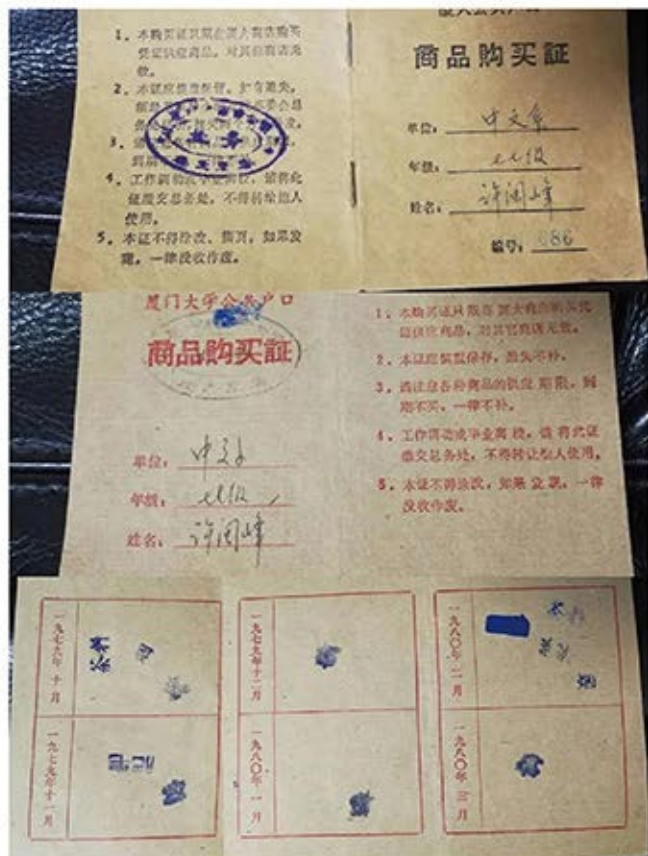 1、本购买证只限在厦大商店购买
凭证供应商品，对其他商店无
效。
2、本证应慎重保管，如有遗失，
3、
4、工作调动或毕业离校，请将此
证缴交总务处，不得转给他人
使用。
5、本证不得涂改、撕页，如果发
现，一律没收作废。
厦大公共户口
商品购买証
单位：中文系
年级：七七级
姓名：许闽峰
编号：086
厦门大学公共户口
商品购买証
单位：中文系
年级：七七级
姓名：许闽峰
1、本购买证只限在厦大商店购买凭
证供应商品，对其它商店无效。
2、本证应慎重保存，遗失不补。
3、请注意各种商品的供应期限，到
期不买，一律不补。
4、工作调动或毕业离校，请将此证
缴交总务处，不得转让他人使用。
5、本证不得涂改，如果发现，一律
没收作废。
一九七九年十月
一九七九年十一月
一九七九年十二月
一九八〇年一月
一九八〇年二月
一九八〇年三月